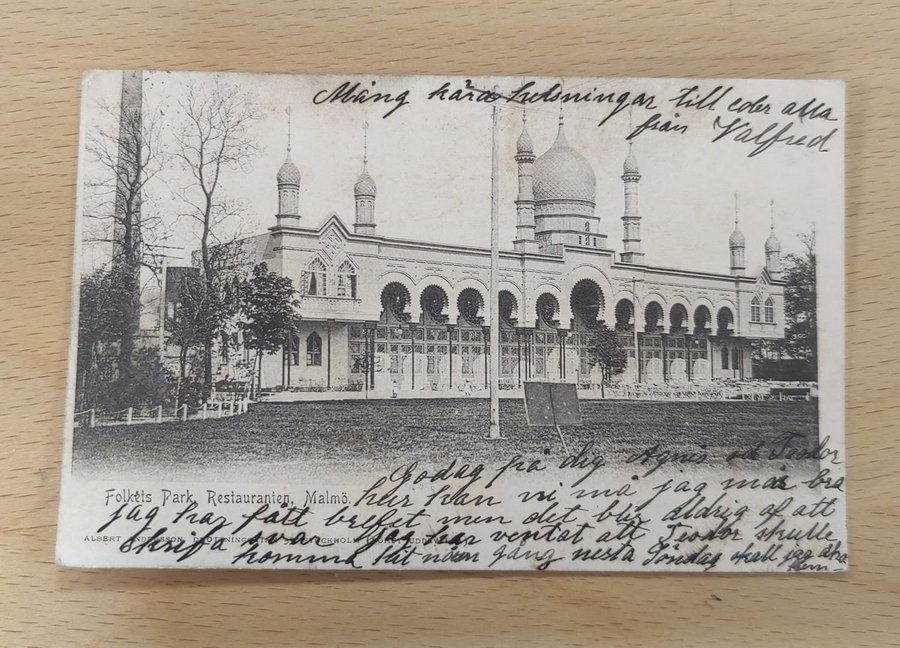 Mång kära helsningar till eder alla
från Valfred
Godag på dig Agnis och Teodor
hur kan ni må jag mår bra
Folkets Park, Restauranten, Malmö.
jag har fått brefvet men det blir aldrig af att
ALBERT ANDERSSON, STOCKHOLM
Skrifva jag har ventat att Teodor skulle
komma hit nån gång nesta Söndag skall jag åka
hem